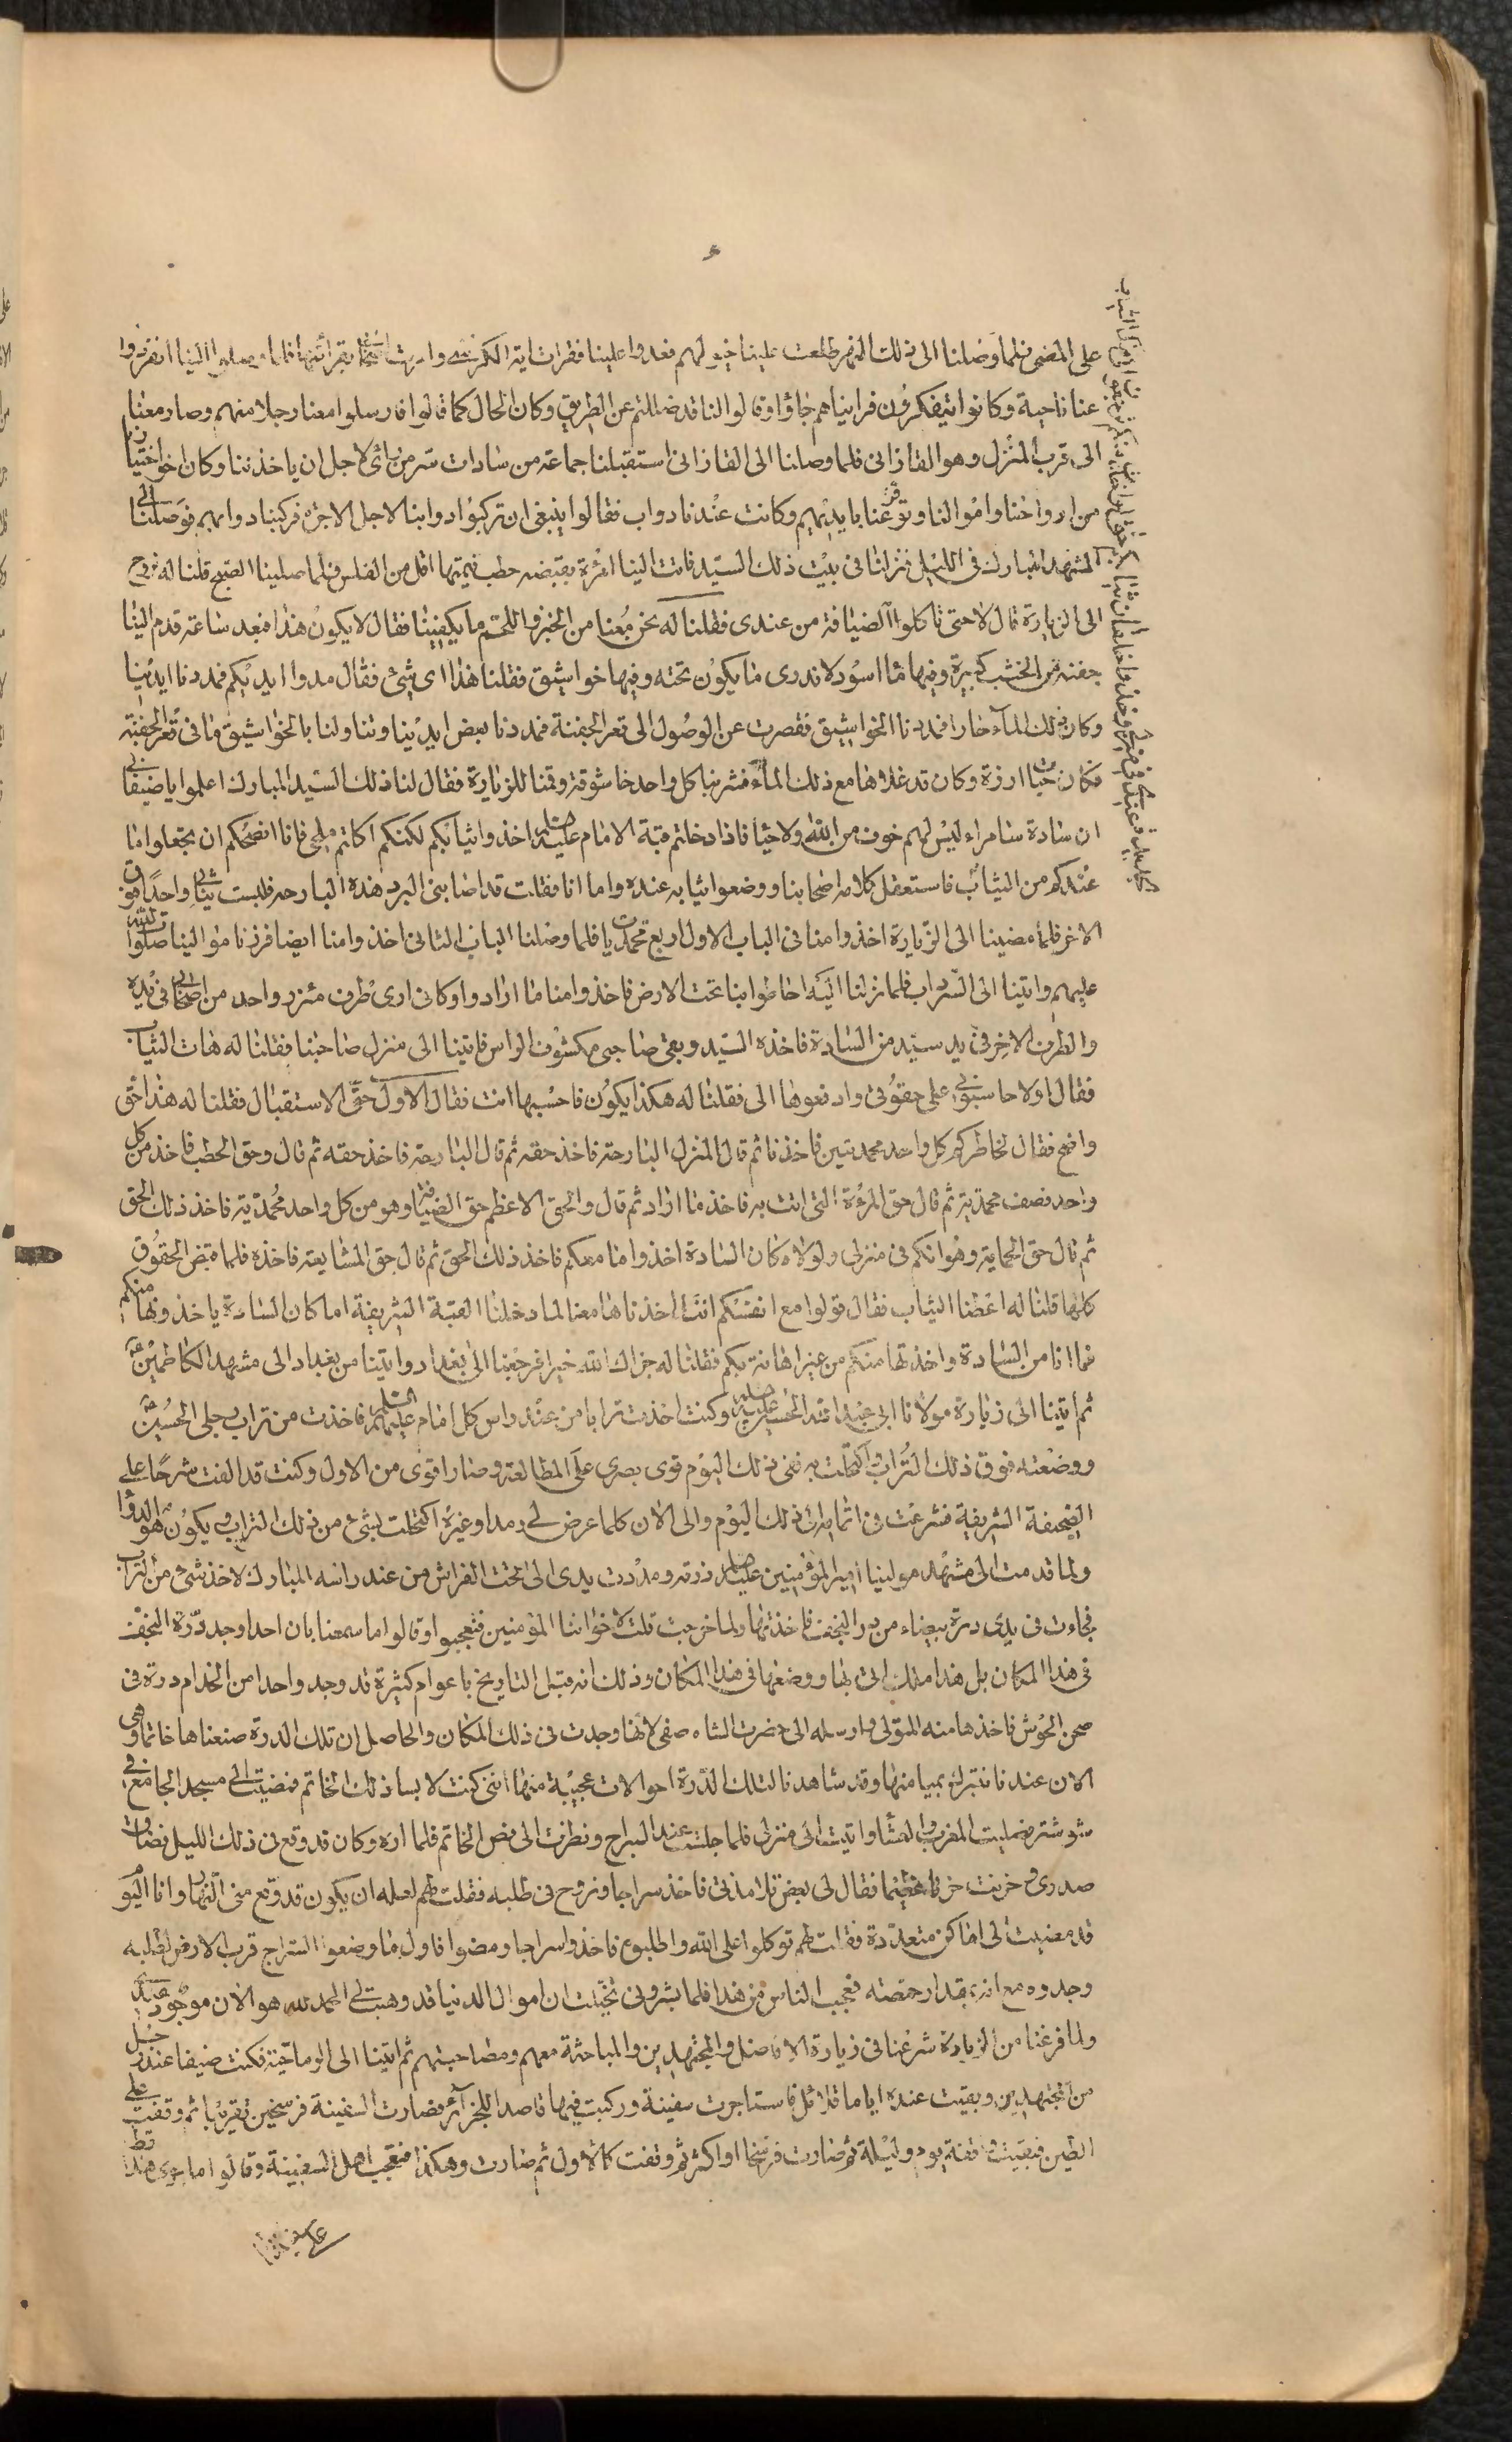 على المضي فلما وصلنا الى ذلك النهر طلعت علينا خيولهم فعدوا علينا فقرات اية الكرسي وامرت اصحابنا بقرائتها فلما وصلوا الينا انفردوا
عنا ناحية وكانوا يتفكرون فراينا هم جاؤا وقالوا لنا قد ضللتم عن الطريق وكان الحال كما قالوا فارسلوا معنا رجلا منهم وصار معنا
الى قرب المنزل وهو القازاني فلما وصلنا الى القازاني استقبلنا جماعة من سادات سر من رأى لاجل ان ياخذوننا وكان اخر اختيارنا
من ارواحنا واموالنا وتوقعنا بايديهم وكانت عندنا دواب فقالوا ينبغي ان تركبوا دوابنا لاجل الاجرة فركبنا دوابهم فوصلنا الى
المشهد المبارك في الليل فنزلنا في بيت ذلك السيد فاتت الينا امرأة بقبضة حطب قيمتها اقل من الفلس فلما صلينا الصبح قلنا له نروح
الى الزيارة قال لا حتى تاكلوا الضيافة من عندى فقلنا له نحن معنا من الخبز واللحم ما يكفينا فقال لا يكون هذا فبعد ساعة قدم الينا
جفنة من الخشب كبيرة وفيها ماء اسود لا ندرى ما يكون تحته وفيها خواشيق فقلنا هذا اى شيء فقال مدوا ايديكم فمددنا ايدينا
وكان ذلك الماء حارا فمددنا الخواشيق فقصرت عن الوصول الى قعر الجفنة فمددنا بعض ايدينا وتناولنا بالخواشيق ما في قعر الجفنة
فكان حبات ارزة وكان قد غلاها مع ذلك الماء فشربنا كل واحد خاشوقة وقمنا للزيارة فقال لنا ذلك السيد المبارك اعلموا يا ضيفاني
ان سادة سامراء ليس لهم خوف من الله ولا حيأ فاذا دخلتم قبة الامام عليه السلم اخذوا ثيابكم لكنكم اكلتم ملحي فانا انصحكم ان تجعلوا ما
عندكم من الثياب فاستعقل كلامه اصحابنا ووضعوا ثيابه عنده واما انا فقلت قد اصابني البرد هذه البارحه فلبست ثيابي واحدا فوق
الاخر فلما مضينا الى الزيارة اخذوا منا في الباب الاول اربع محمديات فلما وصلنا الباب الثاني اخذوا منا ايضا فزرنا موالينا صلوات الله
عليهم واتينا الى السرداب فلما نزلنا اليه احاطوا بنا تحت الارض فاخذوا منا ما ارادوا وكاني ارى طرف مئزر واحد من اصحابي في يده
والطرف الاخر في يد سيد من السادة فاخذه السيد وبقي صاحبي مكشوف الراس فاتينا الى منزل صاحبنا فقلنا له هات الثياب
فقال اولا حاسبوني على حقوقي وادفعوها الى فقلنا له هكذا يكون فاحسبها انت فقال الاول حق الاستقبال فقلنا له هذا حق
واضح فقال لخاطركم كل واحد محمديتين فاخذنا ثم قال المنزل البارحة فاخذ حقه ثم قال البارحة فاخذ حقه ثم قال وحق الحطب فاخذ من كل
واحد نصف محمدية ثم قال حق المرءة التي اتت به فاخذ ما اراد ثم قال والحق الاعظم حق الضيافة وهو من كل واحد محمدية فاخذ ذلك الحق
ثم قال حق الحماية وهو انكم في منزلي ولولاه كان السادة اخذوا ما معكم فاخذ ذلك الحق ثم قال حق المشايعة فاخذه فلما قبض الحقوق
كلها قلنا له اعطنا الثياب فقال قولوا مع انفسكم اننا اخذناها معنا لما دخلنا القبة الشريفة اما كان السادة ياخذونها منكم
فها انا من السادة واخذتها منكم من غير اهانة بكم فقلنا له جزاك الله خيرا فرجعنا الى بغداد واتينا من بغداد الى مشهد الكاظمين ع
ثم اتينا الى زيارة مولانا ابى عبد الله الحسين عليه السلم وكنت اخذت ترابا من عند راس كل امام عليهم السلم فاخذت من تراب رجلي الحسين ع
ووضعته فوق ذلك التراب واكتحلت به ففي ذلك اليوم قوى بصرى على المطالعة وصار اقوى من الاول وكنت قد الفت شرحا على
الصحيفة الشريفة فشرعت في اتمامه في ذلك اليوم والى الان كلما عرض لي رمد او غيره اكتحلت بشيء من ذلك التراب ويكون هو الدوا
ولما قدمت الى مشهد مولينا امير المؤمنين عليه السلم زرته ومددت يدى الى تحت الفراش من عند راسه المبارك لاخذ شيء من التراب
فجاءت في يدى درة بيضاء من در النجف فاخذتها ولما خرجت قلت لاخواننا المؤمنين فتعجبوا وقالوا ما سمعنا بان احدا وجد درة النجف
في هذا المكان بل هذا ملك اتى بها ووضعها في هذا المكان وذلك انه قبل التاريخ باعوام كثيرة قد وجد واحدا من الخدام درة في
صحن الحوش فاخذها منه المتولي وارسله الى حضرت الشاه صفي لانها وجدت في ذلك المكان والحاصل ان تلك الدرة صنعناها خاتما وهي
الان عندنا نتبرك بميامنها وقد شاهدنا لتلك الدرة احوالات عجيبة منها انني كنت لابسا ذلك الخاتم فمضيت الى مسجد الجامع في
شوشتر فصليت المغرب والعشا واتيت الى منزلي فلما جلست عند السراج ونظرت الى فص الخاتم فلما اره وكان قد وقع في ذلك الليل فضاق
صدرى وحزنت حزنا عظيما فقال لى بعض تلامذتي فاخذ سراجا ونروح في طلبه فقلت لهم لعله ان يكون قد وقع مني النهار وانا اليوم
قد مضيت الى اماكن متعددة فقلت لهم توكلوا على الله واطلبوه فاخذوا سراجا ومضوا فاول ما وضعوا السراج قرب الارض لطلبه
وجدوه مع انه بقدار حمصة فعجب الناس من هذا فلما بشروني تخيلت ان اموال الدنيا قد وهبت لي الحمد لله هو الان موجود عندى
ولما فرغنا من الزيارة شرعنا في زيارة الافاضل والمجتهدين والمباحثة معهم ومصاحبتهم ثم اتينا الى الرماحية فكنت ضيفا عند رجل
من المجتهدين وبقيت عنده اياما قلائل فاستاجرت سفينة وركبت فيها قاصد اللجزائر فصارت السفينة فرسخين تقريبا ثم وقفت على
الطين فبقيت واقفة يوم وليلة ثم صارت فرسخا او اكثر ثم وقفت كالاول ثم صارت وهكذا فتعجب اهل السفينة وقالوا ما جرى هذا قط